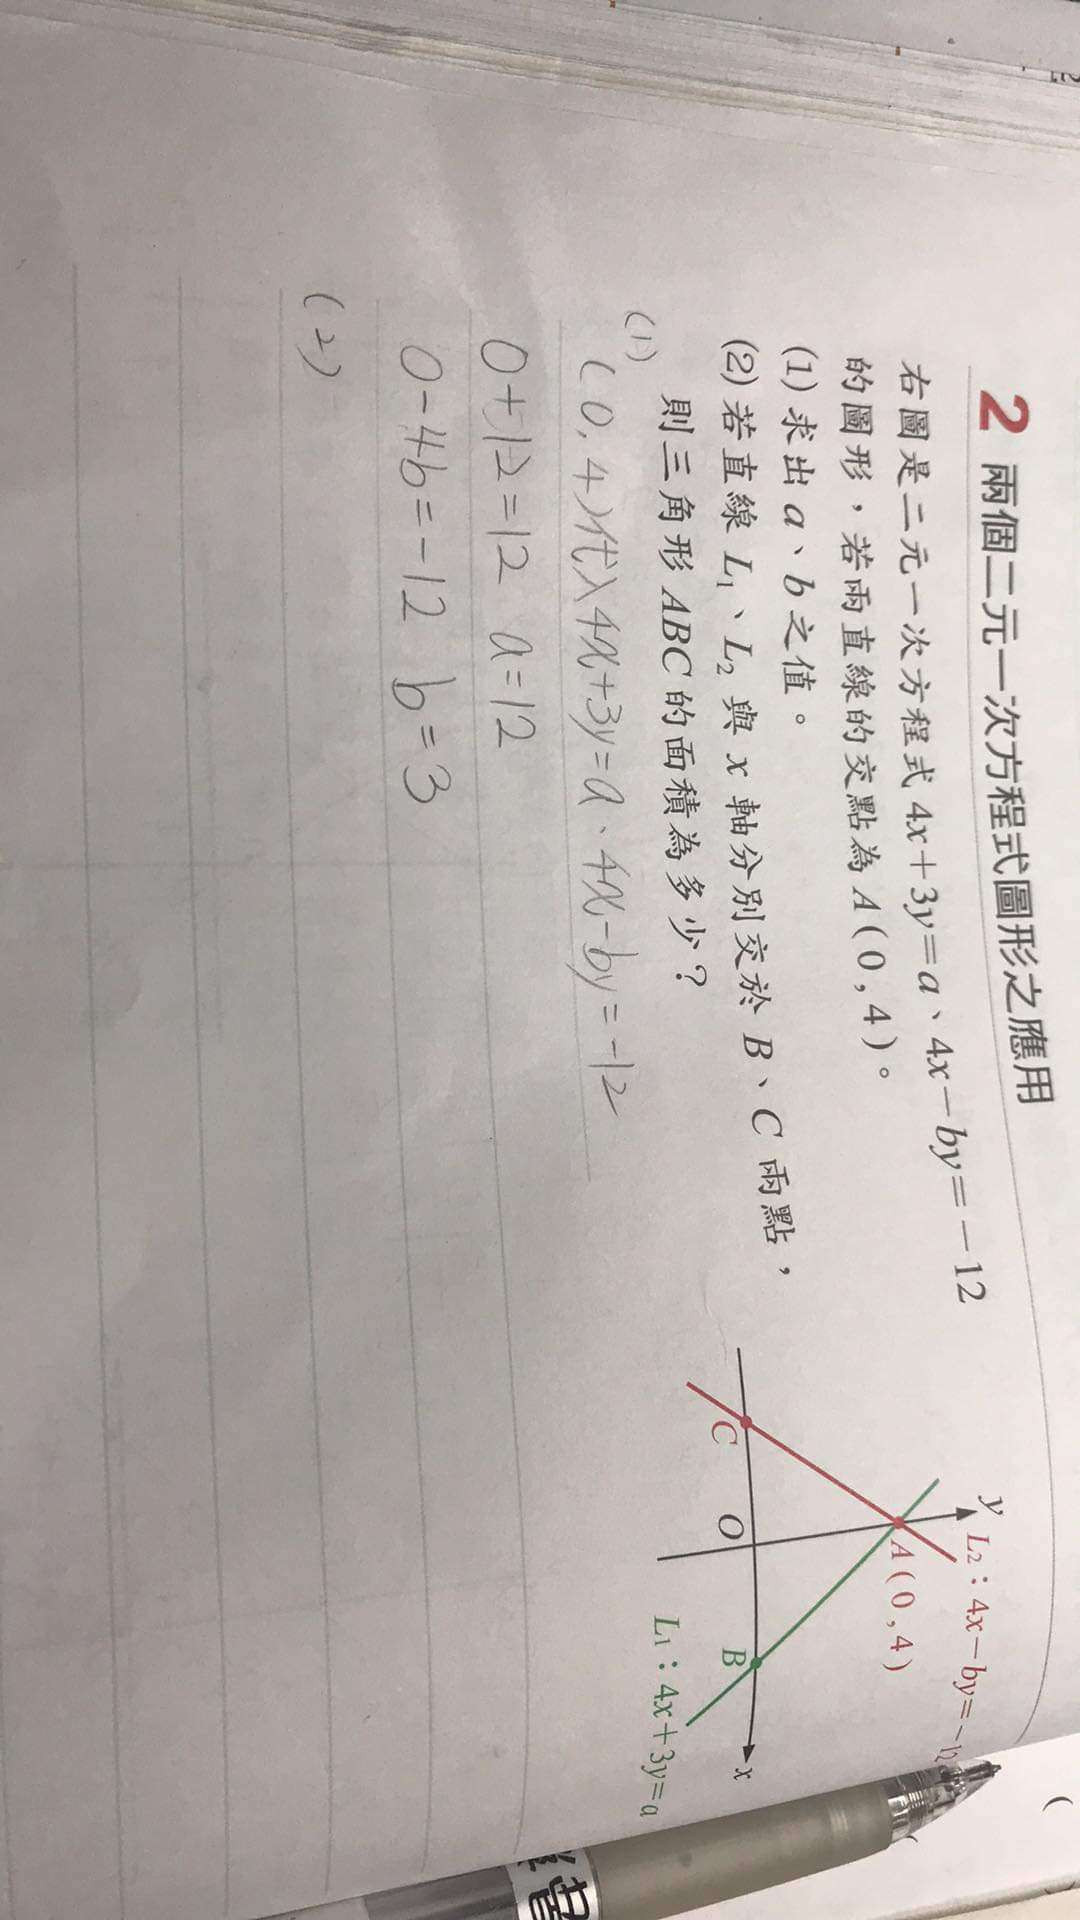 2 兩個二元一次方程式圖形之應用
右圖是二元一次方程式 4x+3y=a、4x-by=-12
的圖形,若兩直線的交點為 A(0,4)。
(1) 求出 a、b 之值。
(2) 若直線 L₁、L₂ 與 x 軸分別交於 B、C 兩點,
則三角形 ABC 的面積為多少?
y
L₂:4x-by=-12
A(0,4)
C
O
B
x
L₁:4x+3y=a
(1)
(0,4)代入4x+3y=a、4x-by=-12
0+12=12 a=12
0-4b=-12 b=3
(2)